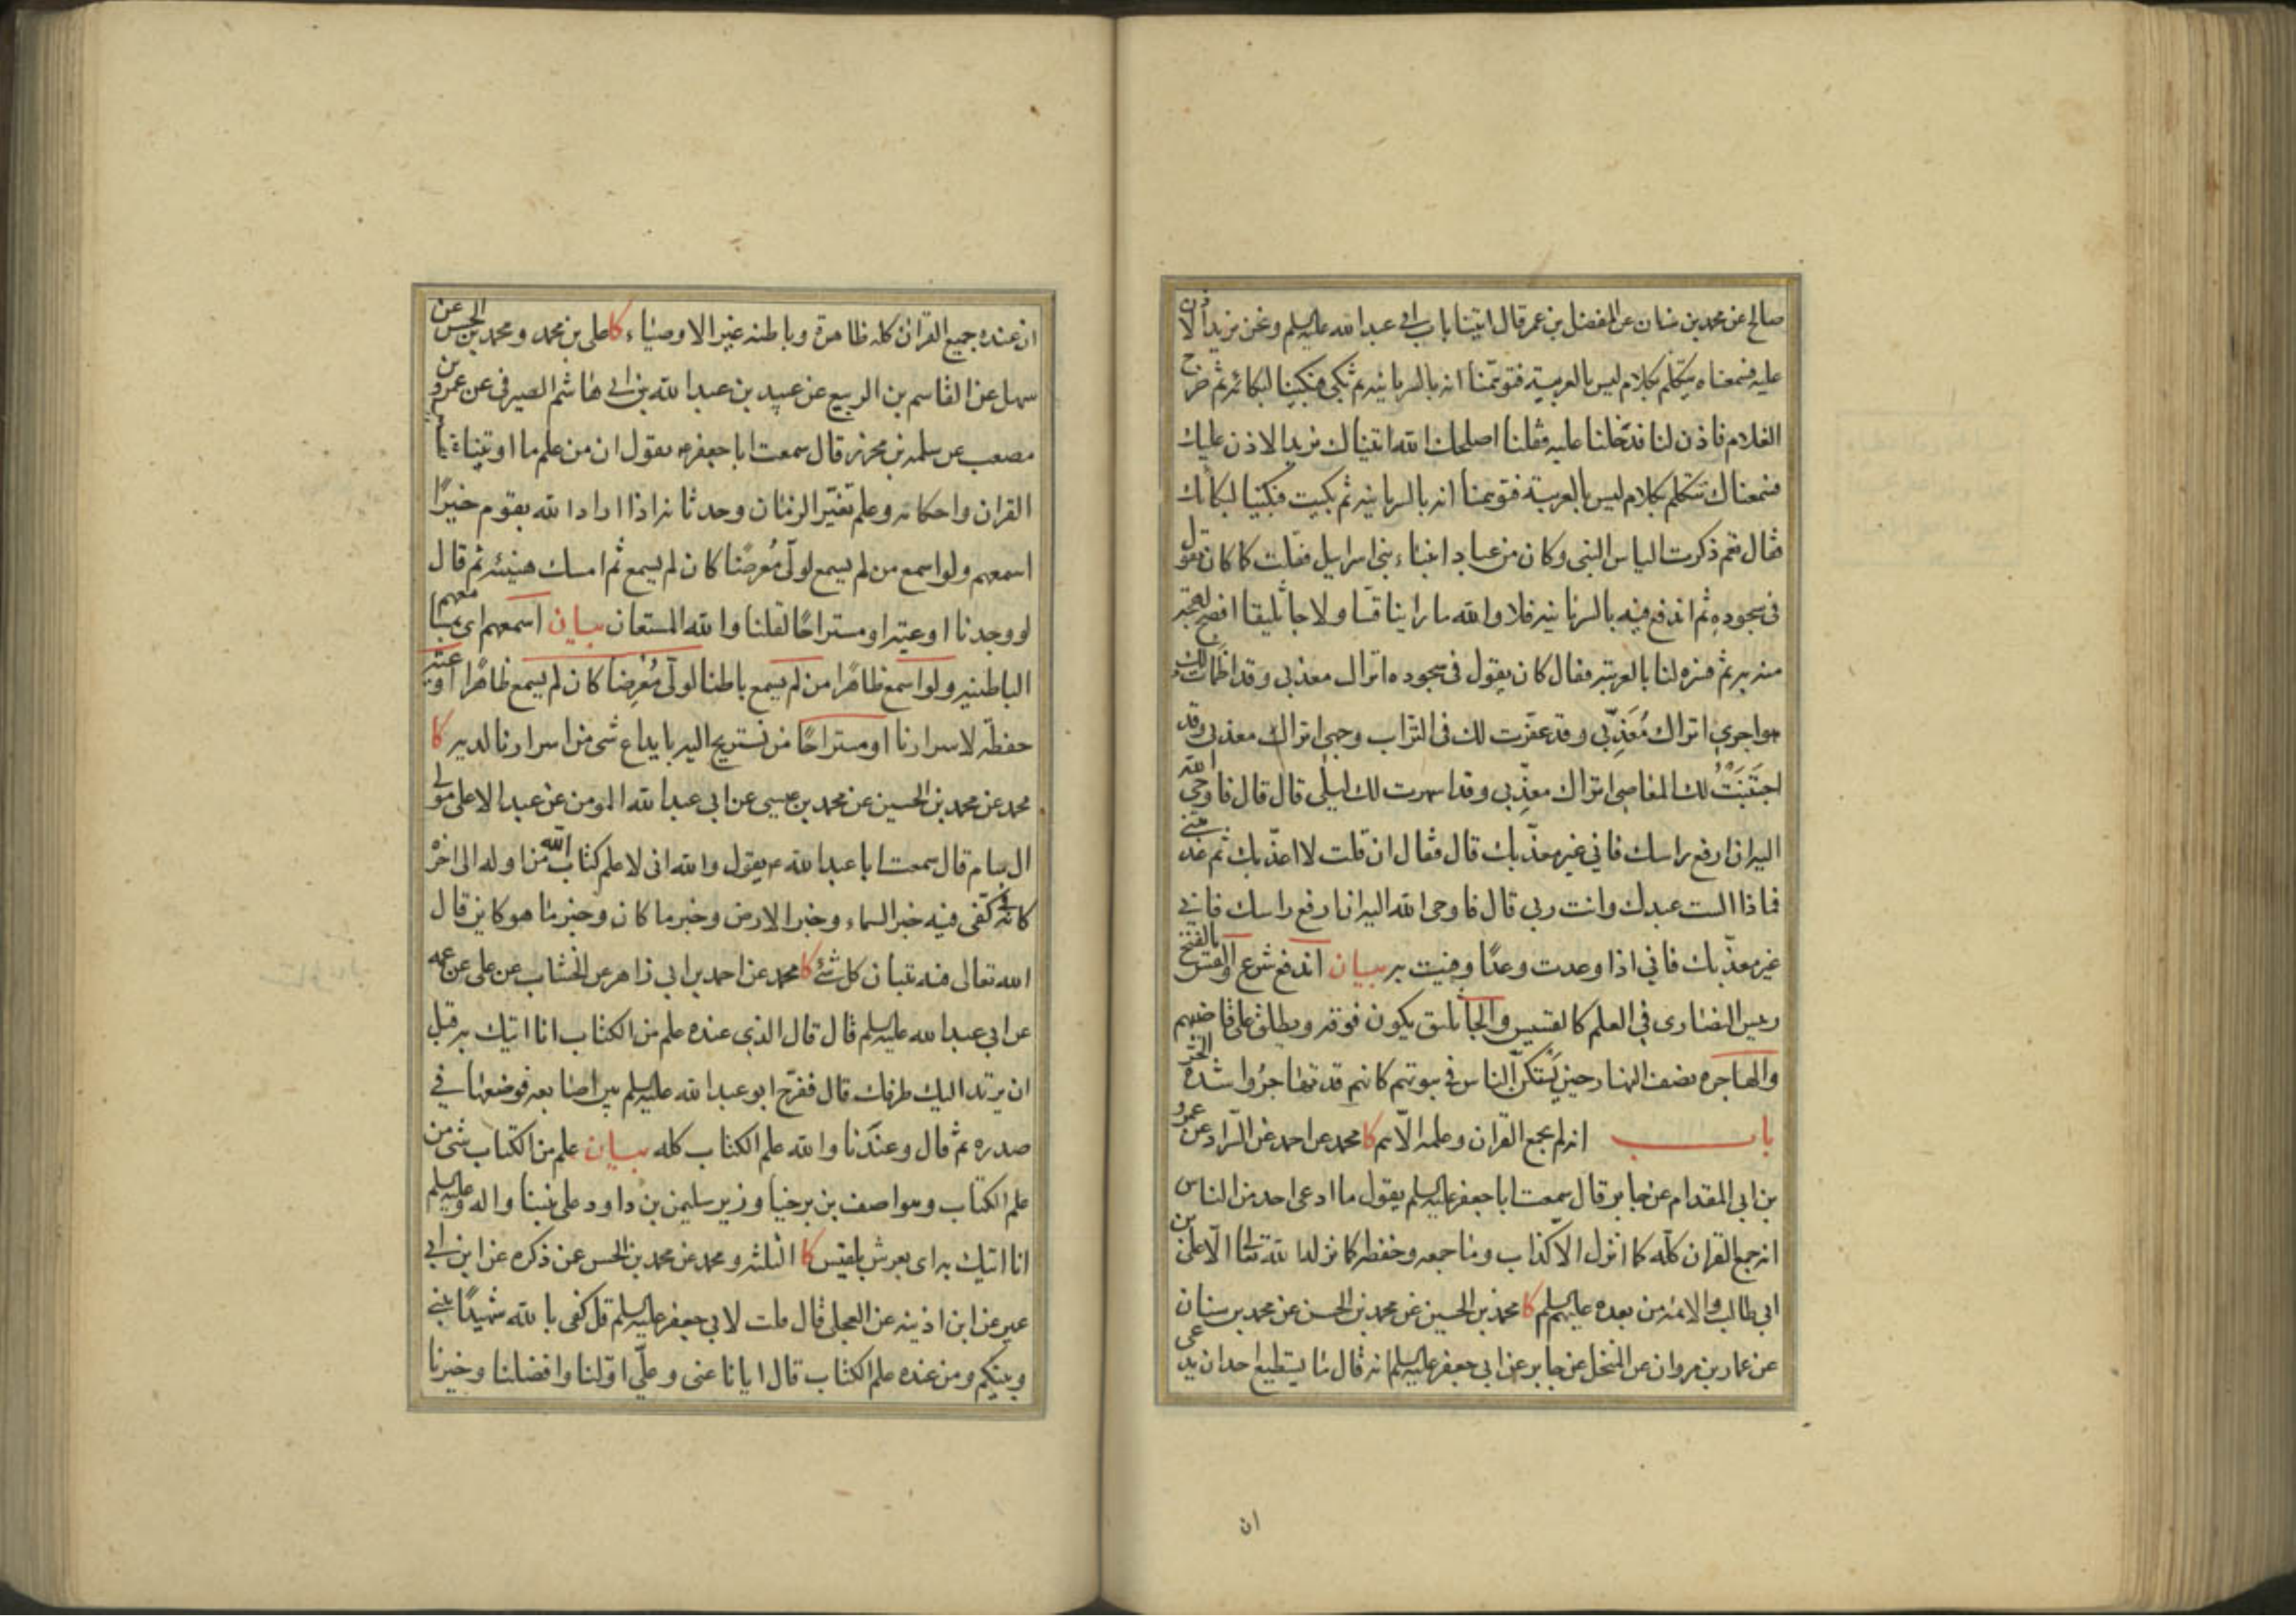 صالح عن محمد بن سنان عن المفضل بن عمر قال اتينا باب ابى عبد الله عليه السلم ونحن نريد الاذن
عليه فسمعناه يتكلم بكلام ليس بالعربية فتوهمنا انه بالسريانيه ثم بكى فبكينا لبكائه ثم خرج
الغلام فاذن لنا فدخلنا عليه فقلنا اصلحك الله اتيناك نريد الاذن عليك
فسمعناك تتكلم بكلام ليس بالعربية فتوهمنا انه بالسريانيه ثم بكيت فبكينا لبكائك
فقال نعم ذكرت الياس النبى وكان من عباد انبياء بنى اسرايل فقلت كما كان يقول
فى سجوده ثم اندفع فيه بالسريانيه فلا والله ما راينا قسا ولا جاثليقا افصح لهجة
منه به ثم فسره لنا بالعربية فقال كان يقول فى سجوده اتراك معذبى وقد اظمات لك
هواجرى اتراك معذبى وقد عفرت لك فى التراب وجهى اتراك معذبى وقد
اجتنبت لك المعاصى اتراك معذبى وقد اسهرت لك ليلى قال قال فاوحى الله
اليه ان ارفع راسك فانى غير معذبك قال فقال ان قلت لا اعذبك ثم عذبتنى
فماذا الست عبدك وانت ربى قال فاوحى الله اليه ان ارفع راسك فانى
غير معذبك فانى اذا وعدت وعدا وفيت به بيان اندفع شرع والقس بالفتح
رييس النصارى فى العلم كالقسيس والجاثليق يكون فوقه ويطلق على قاضيهم
والهاجره نصف النهار حين يستكن الناس فى بيوتهم كانهم قد تهاجروا شدة الحر
باب انه لم يجمع القران وعلمه الا هم كا محمد عن احمد عن السراد عن عمرو
بن ابى المقدام عن جابر قال سمعت ابا جعفر عليه السلم يقول ما ادعى احد من الناس
انه جمع القران كله كما انزل الا كذاب وما جمعه وحفظه كما نزله الله تعالى الا على بن
ابى طالب والائمه من بعده عليهم السلم كا محمد بن الحسين عن محمد بن الحسن عن محمد بن سنان
عن عمار بن مروان عن المنخل عن جابر عن ابى جعفر عليه السلم انه قال ما يستطيع احد ان يدعى
ان
ان عنده جميع القران كله ظاهره وباطنه غير الاوصياء كا على بن محمد ومحمد بن الحسن عن
سهل عن القاسم بن الربيع عن عبيد بن عبد الله بن ابى هاشم الصيرفى عن عمرو بن
مصعب عن سلمه بن محرز قال سمعت ابا جعفر ع يقول ان من علم ما اوتينا
القران واحكامه وعلم تغير الزمان وحدثانه اذا اراد الله بقوم خيرا
اسمعهم ولو اسمع من لم يسمع لولى معرضا كان لم يسمع ثم امسك هنيئه ثم قال
لو وجدنا اوعيه او مستراحا لقلنا والله المستعان بيان اسمعهم اى
الباطنيه ولو اسمع ظاهرا من لم يسمع باطنا لولى معرضا كان لم يسمع ظاهرا اوعية
حفظة لاسرارنا او مستراحا من نستريح اليه بايداع شى من اسرارنا لديه كا
محمد عن محمد بن الحسين عن محمد بن عيسى عن ابى عبد الله المومن عن عبد الاعلى مولى
ال سام قال سمعت ابا عبد الله ع يقول والله انى لاعلم كتاب الله من اوله الى اخره
كانه فى كفى فيه خبر السماء وخبر الارض وخبر ما كان وخبر ما هو كاين قال
الله تعالى فيه تبيان كل شئ كا محمد عن احمد بن ابى زاهر عن الخشاب عن على عن عمه
عن ابى عبد الله عليه السلم قال قال الذى عنده علم من الكتاب انا اتيك به قبل
ان يرتد اليك طرفك قال ففرج ابو عبد الله عليه السلم بين اصابعه فوضعها فى
صدره ثم قال وعندنا والله علم الكتاب كله بيان علم من الكتاب شى من
علم الكتاب وهو اصف بن برخيا وزير سليمن بن داود على نبينا واله وعليه السلم
انا اتيك به اى بعرش بلقيس كا الثلثه ومحمد عن محمد بن الحسن عن ذكره عن ابن ابى
عمير عن ابن اذينه عن العجلى قال قلت لابى جعفر عليه السلم قل كفى بالله شهيدا بينى
وبينكم ومن عنده علم الكتاب قال ايانا عنى وعلى اولنا وافضلنا وخيرنا